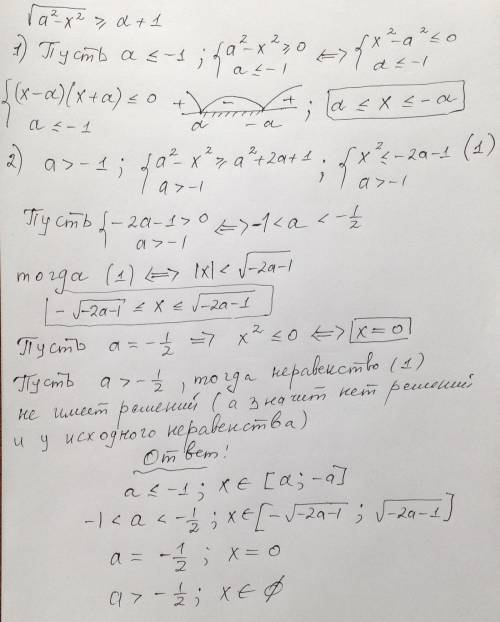 √(a²-x²) ⩾ a+1
1) Пусть a ≤ -1 ; { a²-x² ⩾ 0 <=> { x²-a² ≤ 0
a ≤ -1 a ≤ -1
{ (x-a)(x+a) ≤ 0 + - + ; a ≤ x ≤ -a
a ≤ -1 a -a
2) a > -1 ; { a²-x² ⩾ a²+2a+1 ; { x² ≤ -2a-1 (1)
a > -1 a > -1
Пусть { -2a-1 > 0 <=> -1 < a < -1/2
a > -1
тогда (1) <=> |x| < √(-2a-1)
-√(-2a-1) ≤ x ≤ √(-2a-1)
Пусть a = -1/2 => x² ≤ 0 <=> x = 0
Пусть a > -1/2 , тогда неравенство (1)
не имеет решений (а значит нет решений
и у исходного неравенства)
Ответ!
a ≤ -1 ; x ∈ [a ; -a]
-1 < a < -1/2 ; x ∈ [-√(-2a-1) ; √(-2a-1)]
a = -1/2 ; x = 0
a > -1/2 ; x ∈ ∅